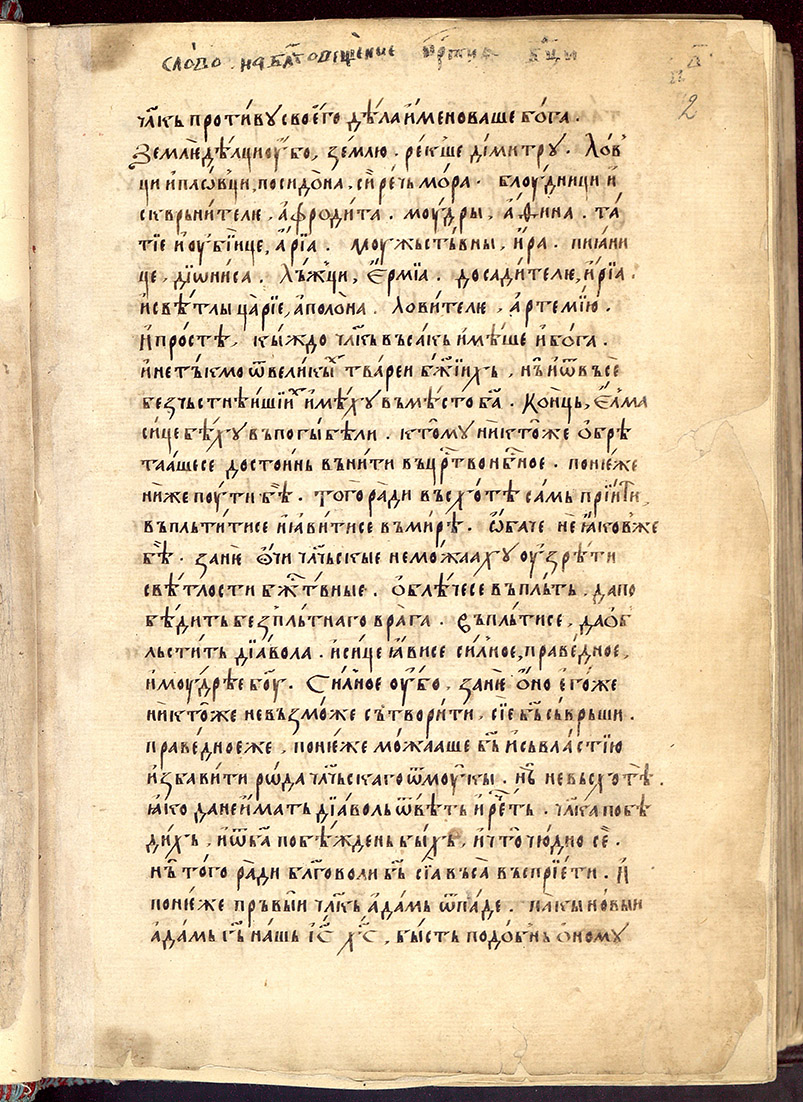 сло́во на бл҃говѣще́ние прⷭ҇тыа бц҃и
2
чл҃кь проти́ву своѥ́го дѣ́ла и҆менова́ше бо́га .
Землѥдѣ́лци ѹ҆́бо , зе́млю . ре́кше ди́митру . Ло́в
ци и҆ пла́вци , посидо́на , си́ рѣчь мо́ра . блѹ́дници и҆
скврьни́телїе , а҆фроди́та . мѹ́дры , а҆ѳи́на . та́
тїе и҆ ѹ҆бі́ице , а҆́рїа . Мѹ́жьствны , и҆́ра . пиꙗ́ни
це , дїѡни́са . Лъ́жци , Е҆́рмїа . досади́телїе , и҆́рїа .
и҆ свѣ́тлы ца́рїе , а҆поло́на . лови́телїе , а҆рте́мїю .
И҆ про́стѣ , кы́ждо чл҃кь въса́кь и҆мѣ́ше и҆ бо́га .
и҆ не тъ́кмо ѿ вели́кыⷯ тва́реи бж҃їихь , нь҆ и҆ ѿ въсе
безчьстнѣ́ишїиⷯ и҆мѣ́ху въ мѣ́сто ба҃ . Коне́ць , Е҆́лма
си́це бѣ́ху въ погы́бѣли . ктомѹ̀ никто́же ѡ҆брѣ́
та́аше се досто́инь вьни́ти въ црⷭ҇тво нбⷭ҇ное . понѥ́же
ни́же пѹ́ти бѣ̀ . того̀ ра́ди въсхо́тѣ са́мь прїи́ти ,
въпльти́ти се и҆ ꙗ҆ви́ти се въ ми́рѣ . ѡ҆ба́че не ꙗ҆́ковже
бѣ̀ . занѥ̀ о҆́чи чл҃чьскыѥ не мо́жааху ѹ҆зрѣ́ти
свѣ́тлости бжⷭ҇твныѥ . ѡ҆бле́че се въ пль́ть , да по
бѣ́дить безпль́тнаго вра́га . въпль́ти се , да ѡ҆б
льсти́ть дїа́вола . и҆ си́це ꙗ҆ви се си́лное , праве́дное ,
и҆ мѹ́дрѣе бо҃ѹ . Си́лное ѹ҆́бо , занѥ̀ ѡ҆́но ѥ҆го́же
никто́же не възмо́же сътвори́ти , сїе бь҃ съврьши .
праве́дноѥ же , понѥ́же мо́жааше бь҃ и҆ съ вла́стїю
и҆зба́вити рѡ́да чл҃чьскаго ѿ мѹ́кы . нь҆ не въсхо́тѣ .
ꙗ҆́ко да не и҆́мать дїа́воль ѿвѣ́ть и҆ рещи . чл҃ка побѣ
ди́хь , и҆ ѿ ба҃ побѣ́ждень бы́хь , и҆ что̀ чю́дно се .
нь҆ того̀ ра́ди бл҃говоли бь҃ сїа въса̀ въспрїе́ти . И҆
понѥ́же прьвы́и чл҃кь а҆да́мь ѿпа́де . па́кы но́выи
а҆да́мь гь҃ на́шь і҆с҃ хс҃ , бы́сть подо́бнь ѡ҆́ному